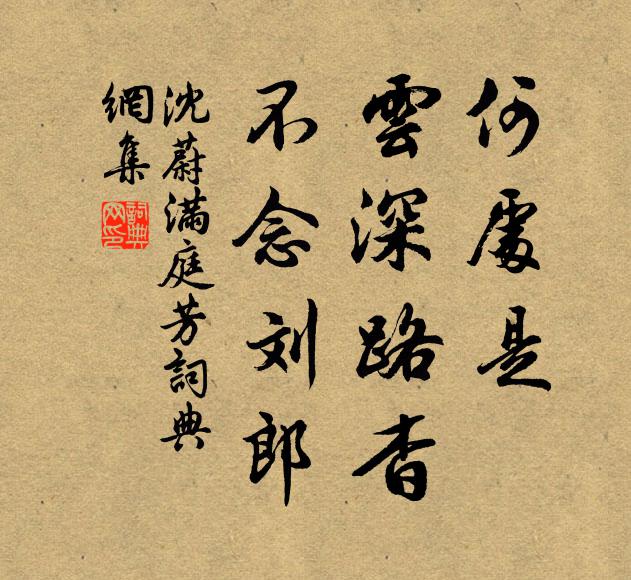 何處是
雲深路杳
不念刘郎
沈蔚滿庭芳詞典
網集
詞典網印